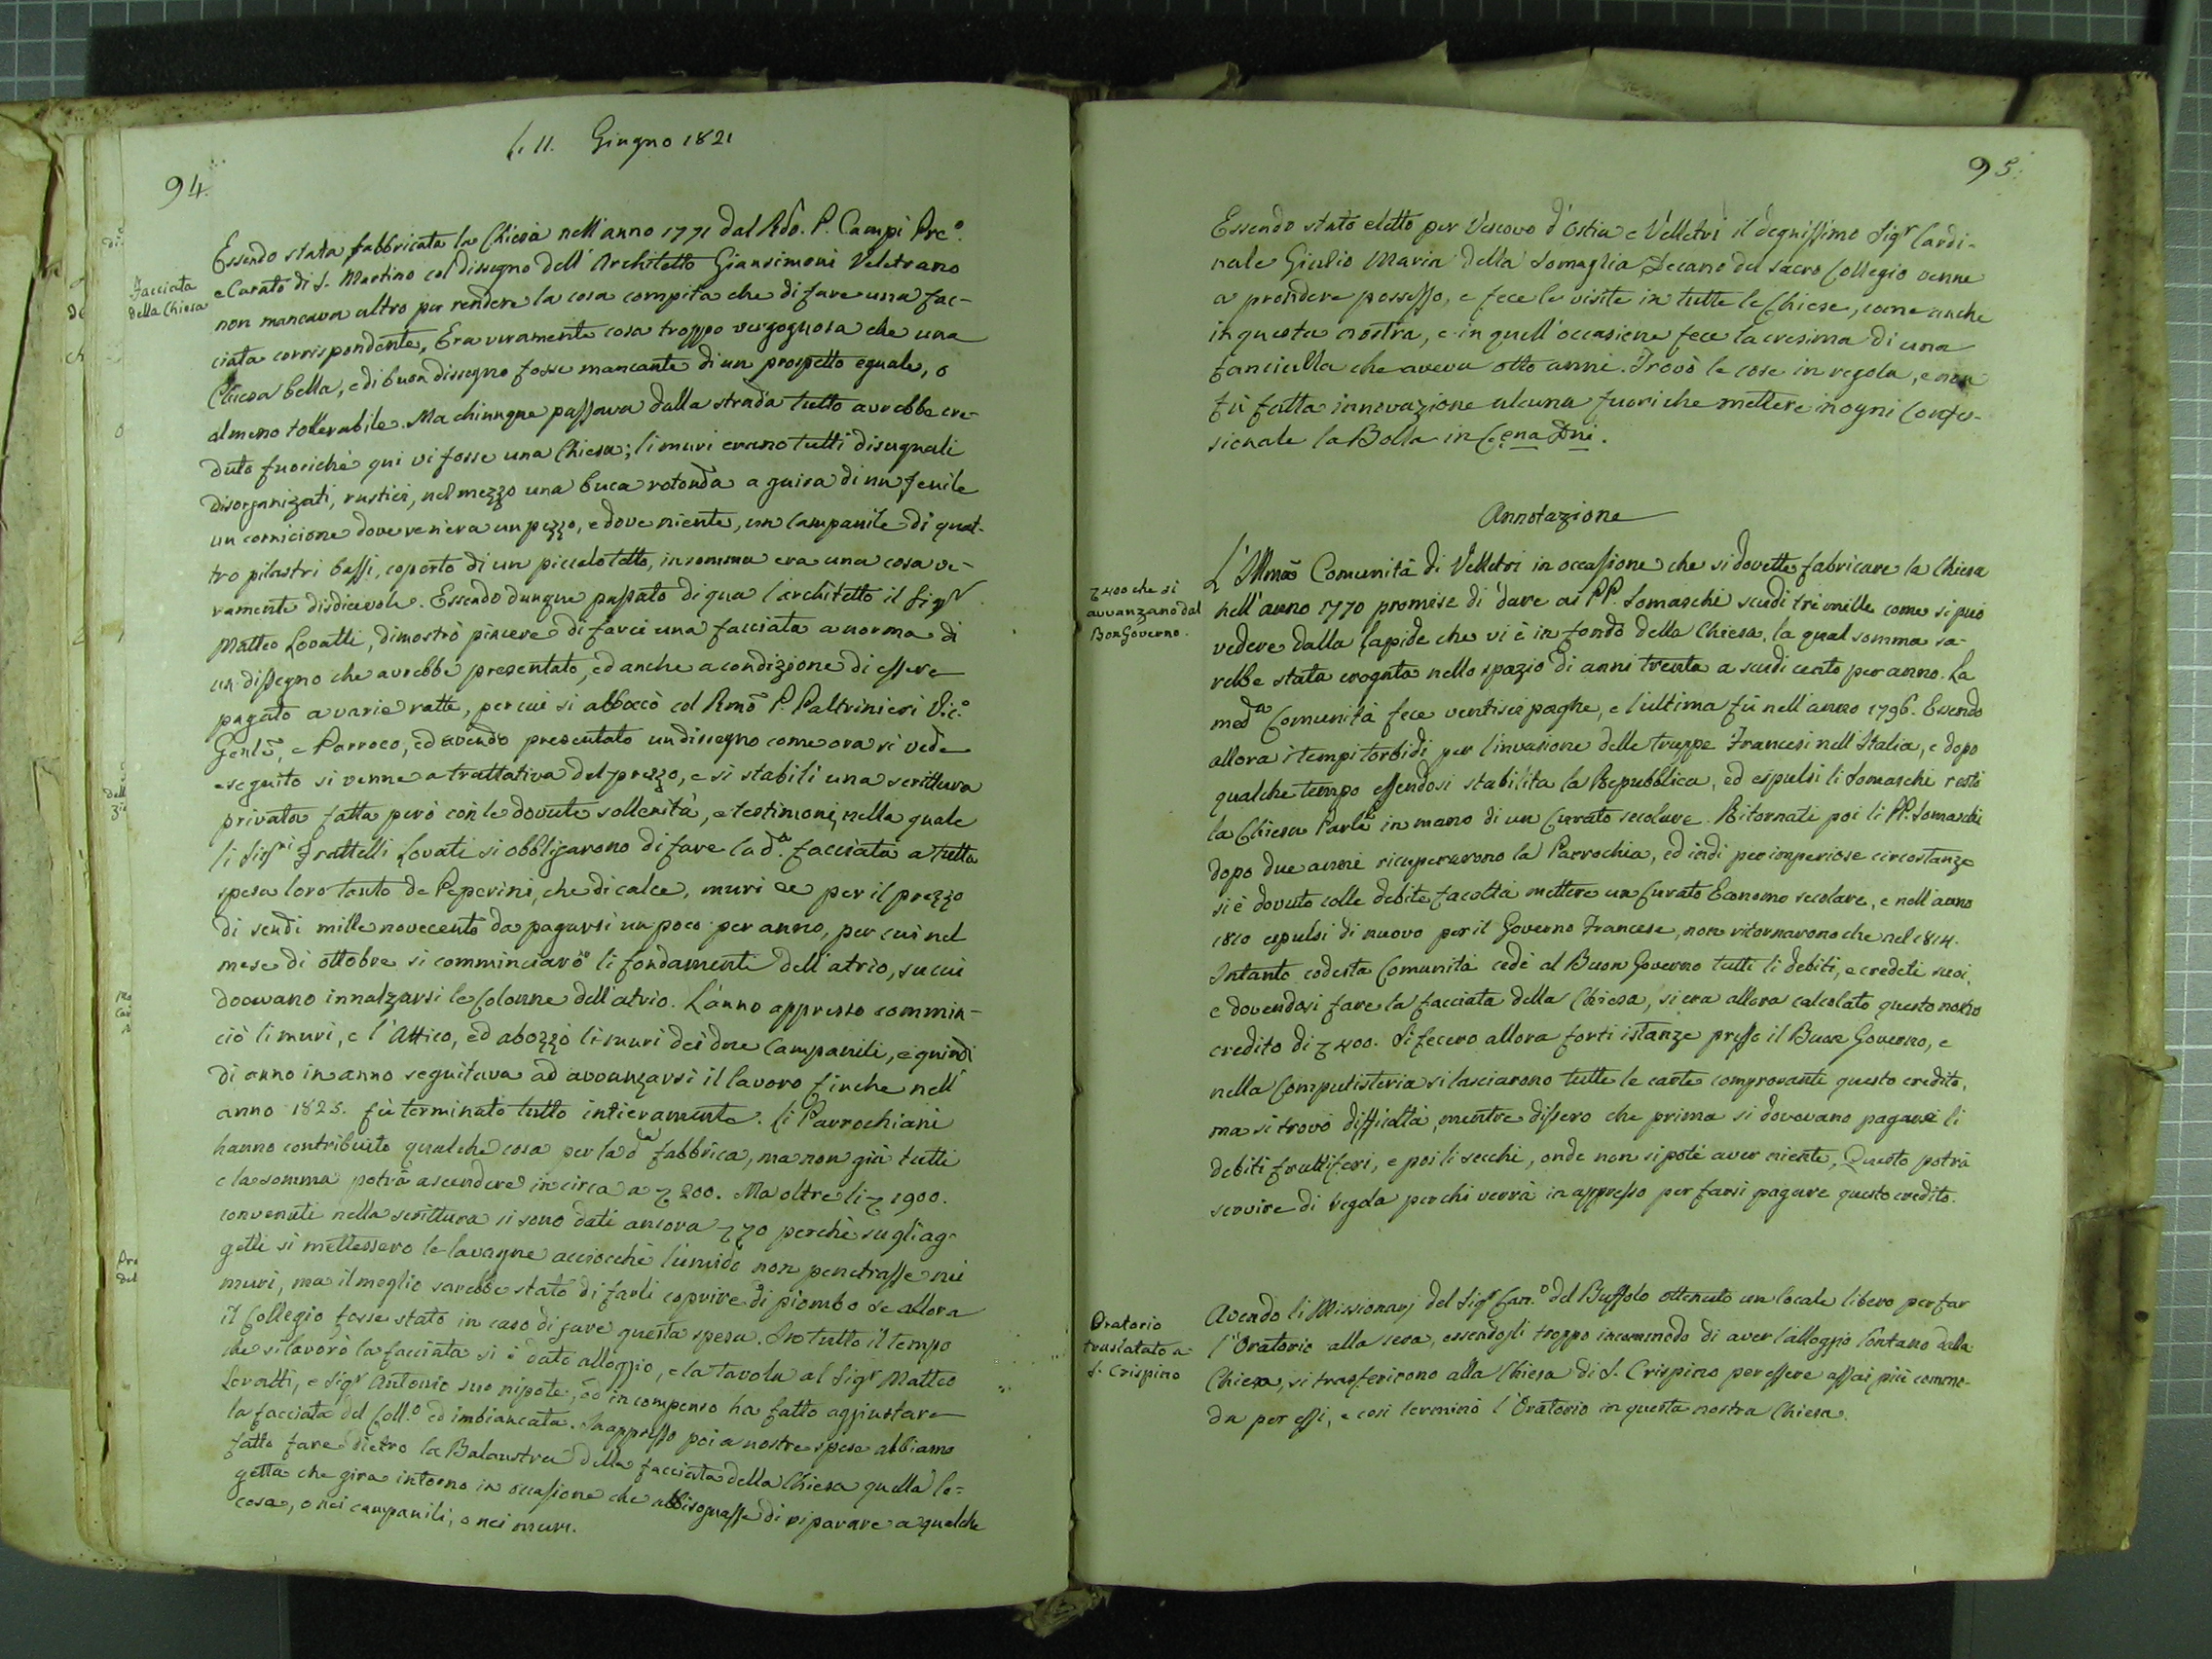 94.
li 11. Giugno 1821
Facciata
della Chiesa
Essendo stata fabbricata la Chiesa nell'anno 1771 dal Rdo. P. Campi Pre.º
e Curato di S. Martino col dissegno dell'Architetto Giansimoni Veletrano
non mancava altro per rendere la cosa compita che di fare una fac-
ciata corrispondente, Era veramente cosa troppo vergognosa che una
Chiesa bella, e di buon dissegno fosse mancante di un prospetto eguale, o
almeno tollerabile. Ma chiunque passava dalla strada tutto avrebbe cre-
duto fuoriché qui vi fosse una Chiesa; li muri erano tutti disuguali
disorganizati, rustici, nel mezzo una buca rotonda a guisa di un fenile
un cornicione dove ven'era un pezzo, e dove niente, un campanile di quat-
tro pilastri bassi, coperto di un piccolo tetto, insomma era una cosa ve-
ramente disdicevole. Essendo dunque passato di qua l'architetto il Sigr
Matteo Lovatti, dimostrò piacere di farci una facciata a norma di
un dissegno che avrebbe presentato, ed anche a condizione di essere
pagato a varie ratte, per cui si abboccò col Rmo P. Paltrinieri Vic.º
Genle, e Parroco, ed avendo presentato un dissegno come ora si vede
eseguito si venne a trattativa del prezzo, e si stabilì una scrittura
privata fatta però con le dovute sollenità, e testimoni, nella quale
li Sigri Frattelli Lovati si obbligarono di fare la da. facciata a tutta
spesa loro tanto de Peperini, che di calce, muri ec per il prezzo
di scudi mille novecento da pagarsi un poco per anno, per cui nel
mese di ottobre si comminciarono li fondamenti dell'atrio, su cui
dovevano innalzarsi le Colonne dell'atrio. L'anno appresso commin-
ciò li muri, e l'Attico, ed abozzò li muri dei due Campanili, e quindi
di anno in anno seguitava ad avvanzarsi il lavoro finche nell'
anno 1825. fù terminato tutto intieramente. li Parrochiani
hanno contribuito qualche cosa per la da fabbrica, ma non già tutti
e la somma potrà ascendere in circa a 200. Ma oltre li 1900.
convenuti nella scrittura si sono dati ancora 70 perchè su gli ag-
getti si mettessero le lavagne acciocchè l'umido non penetrasse nei
muri, ma il meglio sarebbe stato di farli coprire di piombo se allora
il Collegio fosse stato in caso di fare questa spesa. In tutto il tempo
che si lavorò la facciata si è dato alloggio, e la tavola al Sigr Matteo
Lovatti, e Sigr Antonio suo nipote, ed in compenso ha fatto aggiustare
la facciata del Coll.º ed imbiancata. In appresso poi a nostre spese abbiamo
fatto fare dietro la Balaustra della facciata della Chiesa quella lo-
getta che gira intorno in occasione che abbisognasse di riparare a qualche
cosa, o nei campanili, o nei muri.
95.
Essendo stato eletto per Vescovo d'Ostia e Velletri il degnissimo Sigr Cardi-
nale Giulio Maria della Somaglia Decano del sacro Collegio venne
a prendere possesso, e fece le visite in tutte le Chiese, come anche
in questa nostra, e in quell'occasione fece la cresima di una
fanciulla che aveva otto anni. Trovò le cose in regola, e non
fù fatta innovazione alcuna fuori che mettere in ogni Confes-
sionale la Bolla in Cena Dni.
Annotazione
400 che si
avvanzano dal
Bon Governo.
L'Illma Comunità di Velletri in occassione che si dovette fabricare la Chiesa
nell'anno 1770 promise di dare ai PP. Somaschi scudi tre mille come si può
vedere dalla lapide che vi è in fondo della Chiesa, la qual somma sa-
rebbe stata erogata nello spazio di anni trenta a scudi cento per anno. La
meda Comunità fece ventisei paghe, e l'ultima fù nell'anno 1796. Essendo
allora i tempi torbidi per l'invasione delle truppe Francesi nell'Italia, e dopo
qualche tempo essendosi stabilita la Repubblica, ed espulsi li Somaschi restò
la Chiesa Parle in mano di un Curato secolare. Ritornati poi li PP. Somaschi
dopo due anni ricuperarono la Parrochia, ed indi per imperiose circostanze
si è dovuto colle debite facoltà mettere un Curato Economo secolare, e nell'anno
1810 espulsi di nuovo per il Governo Francese, non ritornarono che nel 1814.
Intanto codesta Comunità cedè al Buon Governo tutti li debiti, e crediti suoi,
e dovendosi fare la facciata della Chiesa, si era allora calcolato questo nostro
credito di 400. Si fecero allora forti istanze presso il Buon Governo, e
nella Computisteria si lasciarono tutte le carte comprovanti questo credito,
ma si trovò difficoltà, mentre dissero che prima si dovevano pagare li
debiti fruttiferi, e poi li secchi, onde non si potè aver niente, Questo potrà
servire di regola per chi verrà in appresso per farsi pagare questo credito.
Oratorio
traslatato a
S. Crispino
Avendo li Missionarj del Sigr Can.º del Buffolo ottenuto un locale libero per far
l'Oratorio alla sera, essendogli troppo incommodo di aver l'alloggio lontano dalla
Chiesa, si trasferirono alla Chiesa di S. Crispino per essere assai più commo-
da per essi, e così terminò l'Oratorio in questa nostra Chiesa.